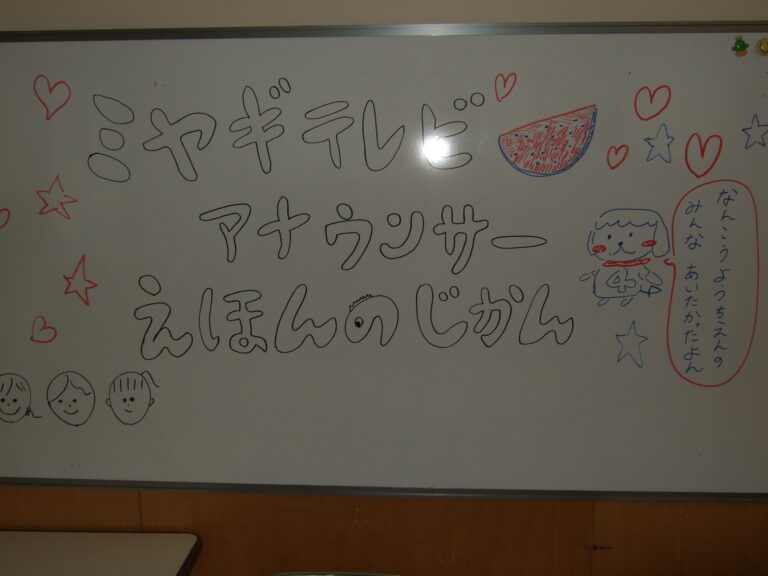 ミヤギテレビ
アナウンサー
えほんのじかん
なんこうようちえんの
みんな あいたかったよん
4